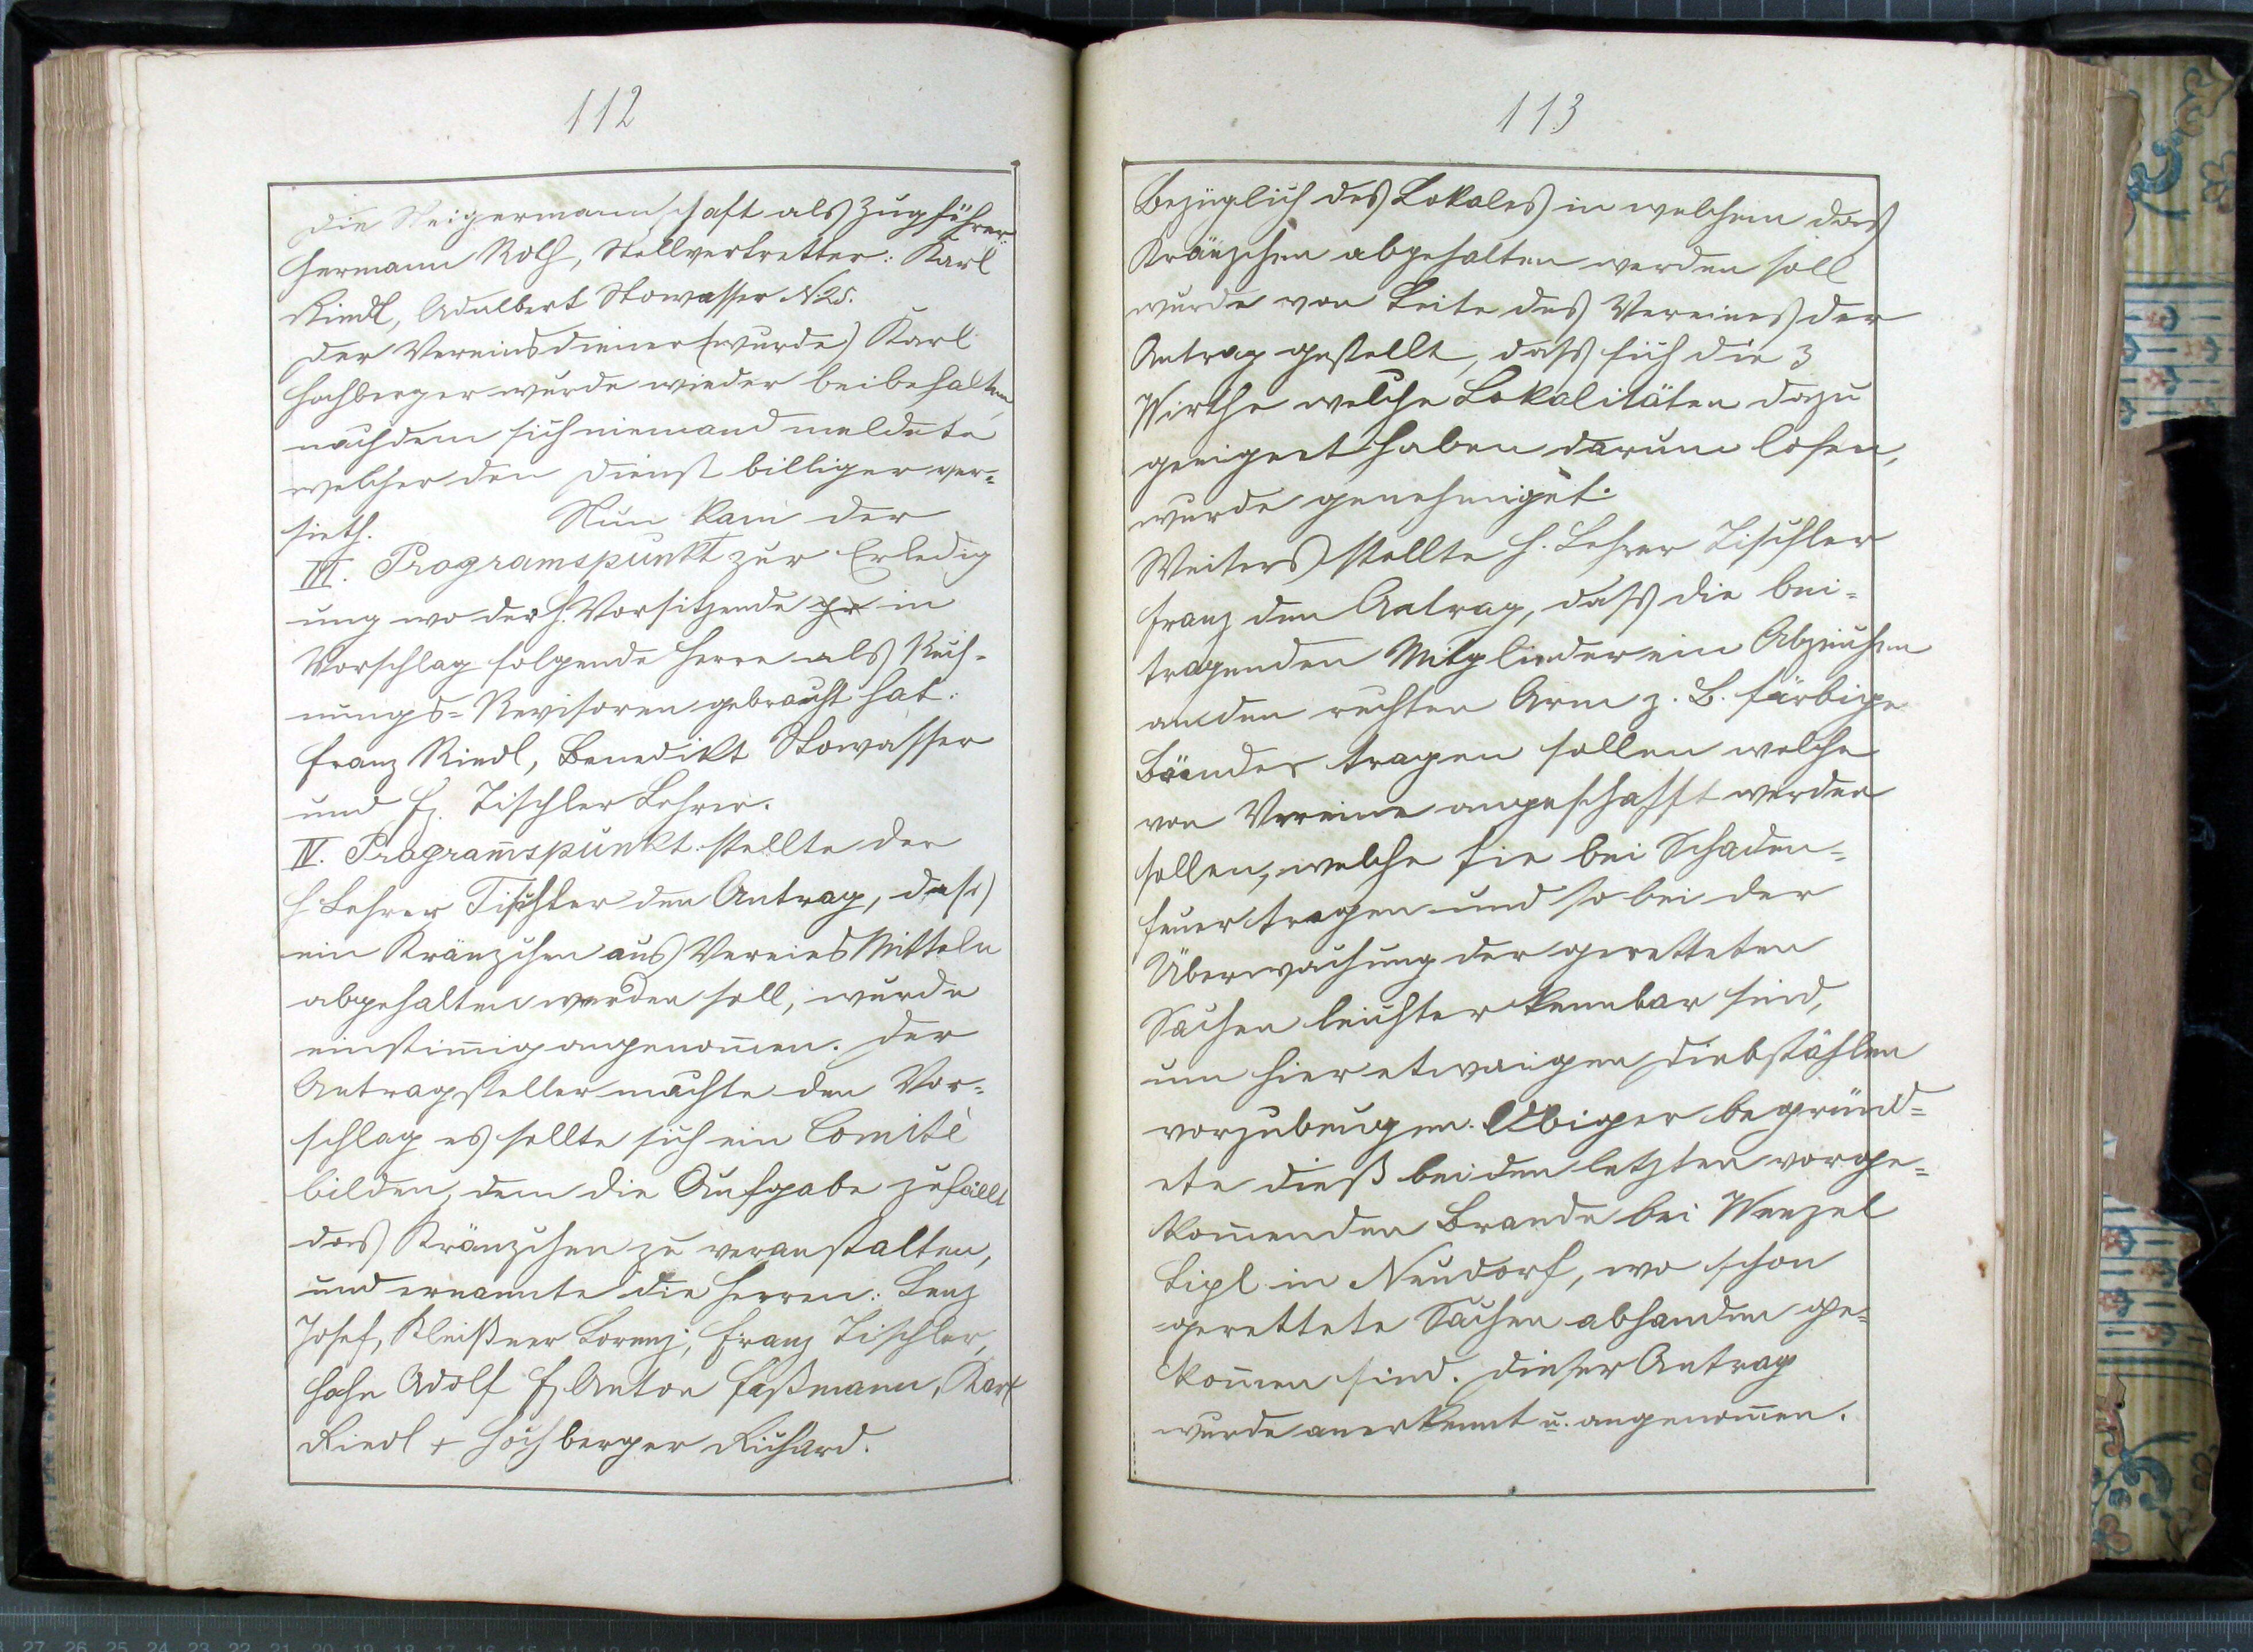 112
Die Steigermannschaft als Zugführer:
Hermann Roth, Stellvertretter: Karl
Riedl, Adalbert Stowasser N:25.
Der Vereinsdiener (wurde) Karl
Hochberger wurde wieder beibehalten,
nachdem sich niemand meldete
welcher den Dienst billiger ver-
sieth. Nun kam der
III. Programspunkt zur Erledig
ung wo der H. Vorsitzende in
Vorschlag folgende Herrn als Rech-
nungs-Revisoren gebracht hat:
Franz Riedl, Benedikt Stowasser
und Fz. Tischler Lehrer.
IV. Programspunkt stellte der
H Lehrer Tischler den Antrag, dass
ein Kränzchen aus Vereins Mitteln
abgehalten werden soll, wurde
einstimig angenomen. Der
Antragsteller machte den Vor-
schlag es sollte sich ein Comité
bilden, dem die Aufgabe zufällt
das Kränzchen zu veranstalten,
und ernannte die Herren: Lenz
Josef, Kleißner Lorenz, Franz Tischler,
Hahn Adolf Fz Anton Faßmann, Karl
Riedl + Hochberger Richard.
113
Bezüglich des Lokales in welchem das
Kränzchen abgehalten werden soll
wurde von Seite des Vereines der
Antrag gestellt, dass sich die 3
Wirthe welche Lokalitäten dazu
geeignet haben darum losen,
wurde genehmiget.
Weiters stellte H. Lehrer Tischler
Franz den Antrag, dass die bei-
tragenden Mitglieder ein Abzeichen
an den rechten Arm z. B. färbige
Bänder tragen sollen welche
von Vereine angeschafft werden
sollen, welche sie bei Schaden-
feuer tragen und so bei der
Überwachung der geretteten
Sachen leichter kennbar sind,
um hier etwaigen Diebstählen
vorzubeugen. Obiger begründ-
ete dieß bei den letzten vorge-
komenden Brande bei Wenzel
Lipl in Neudorf, wo schon
gerettete Sachen abhanden ge-
komen sind. Dieser Antrag
wurde anerkennt u. angenomen.